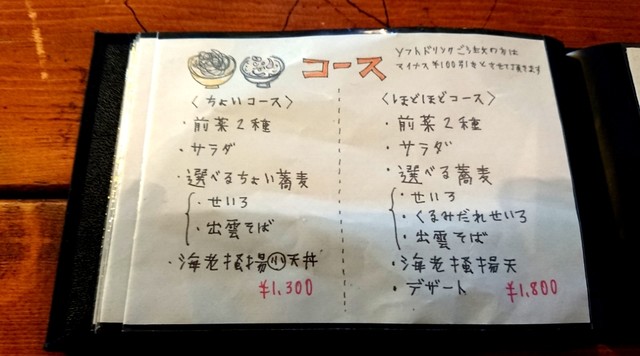 コース
ソフトドリンクご注文の方は
マイナス¥100引きとさせて頂きます
〈ちょいコース〉
・前菜2種
・サラダ
・選べるちょい蕎麦
・せいろ
・出雲そば
・海老掻揚小天丼
¥1,300
〈ほどほどコース〉
・前菜2種
・サラダ
・選べる蕎麦
・せいろ
・くるみだれせいろ
・出雲そば
・海老掻揚天
・デザート
¥1,800